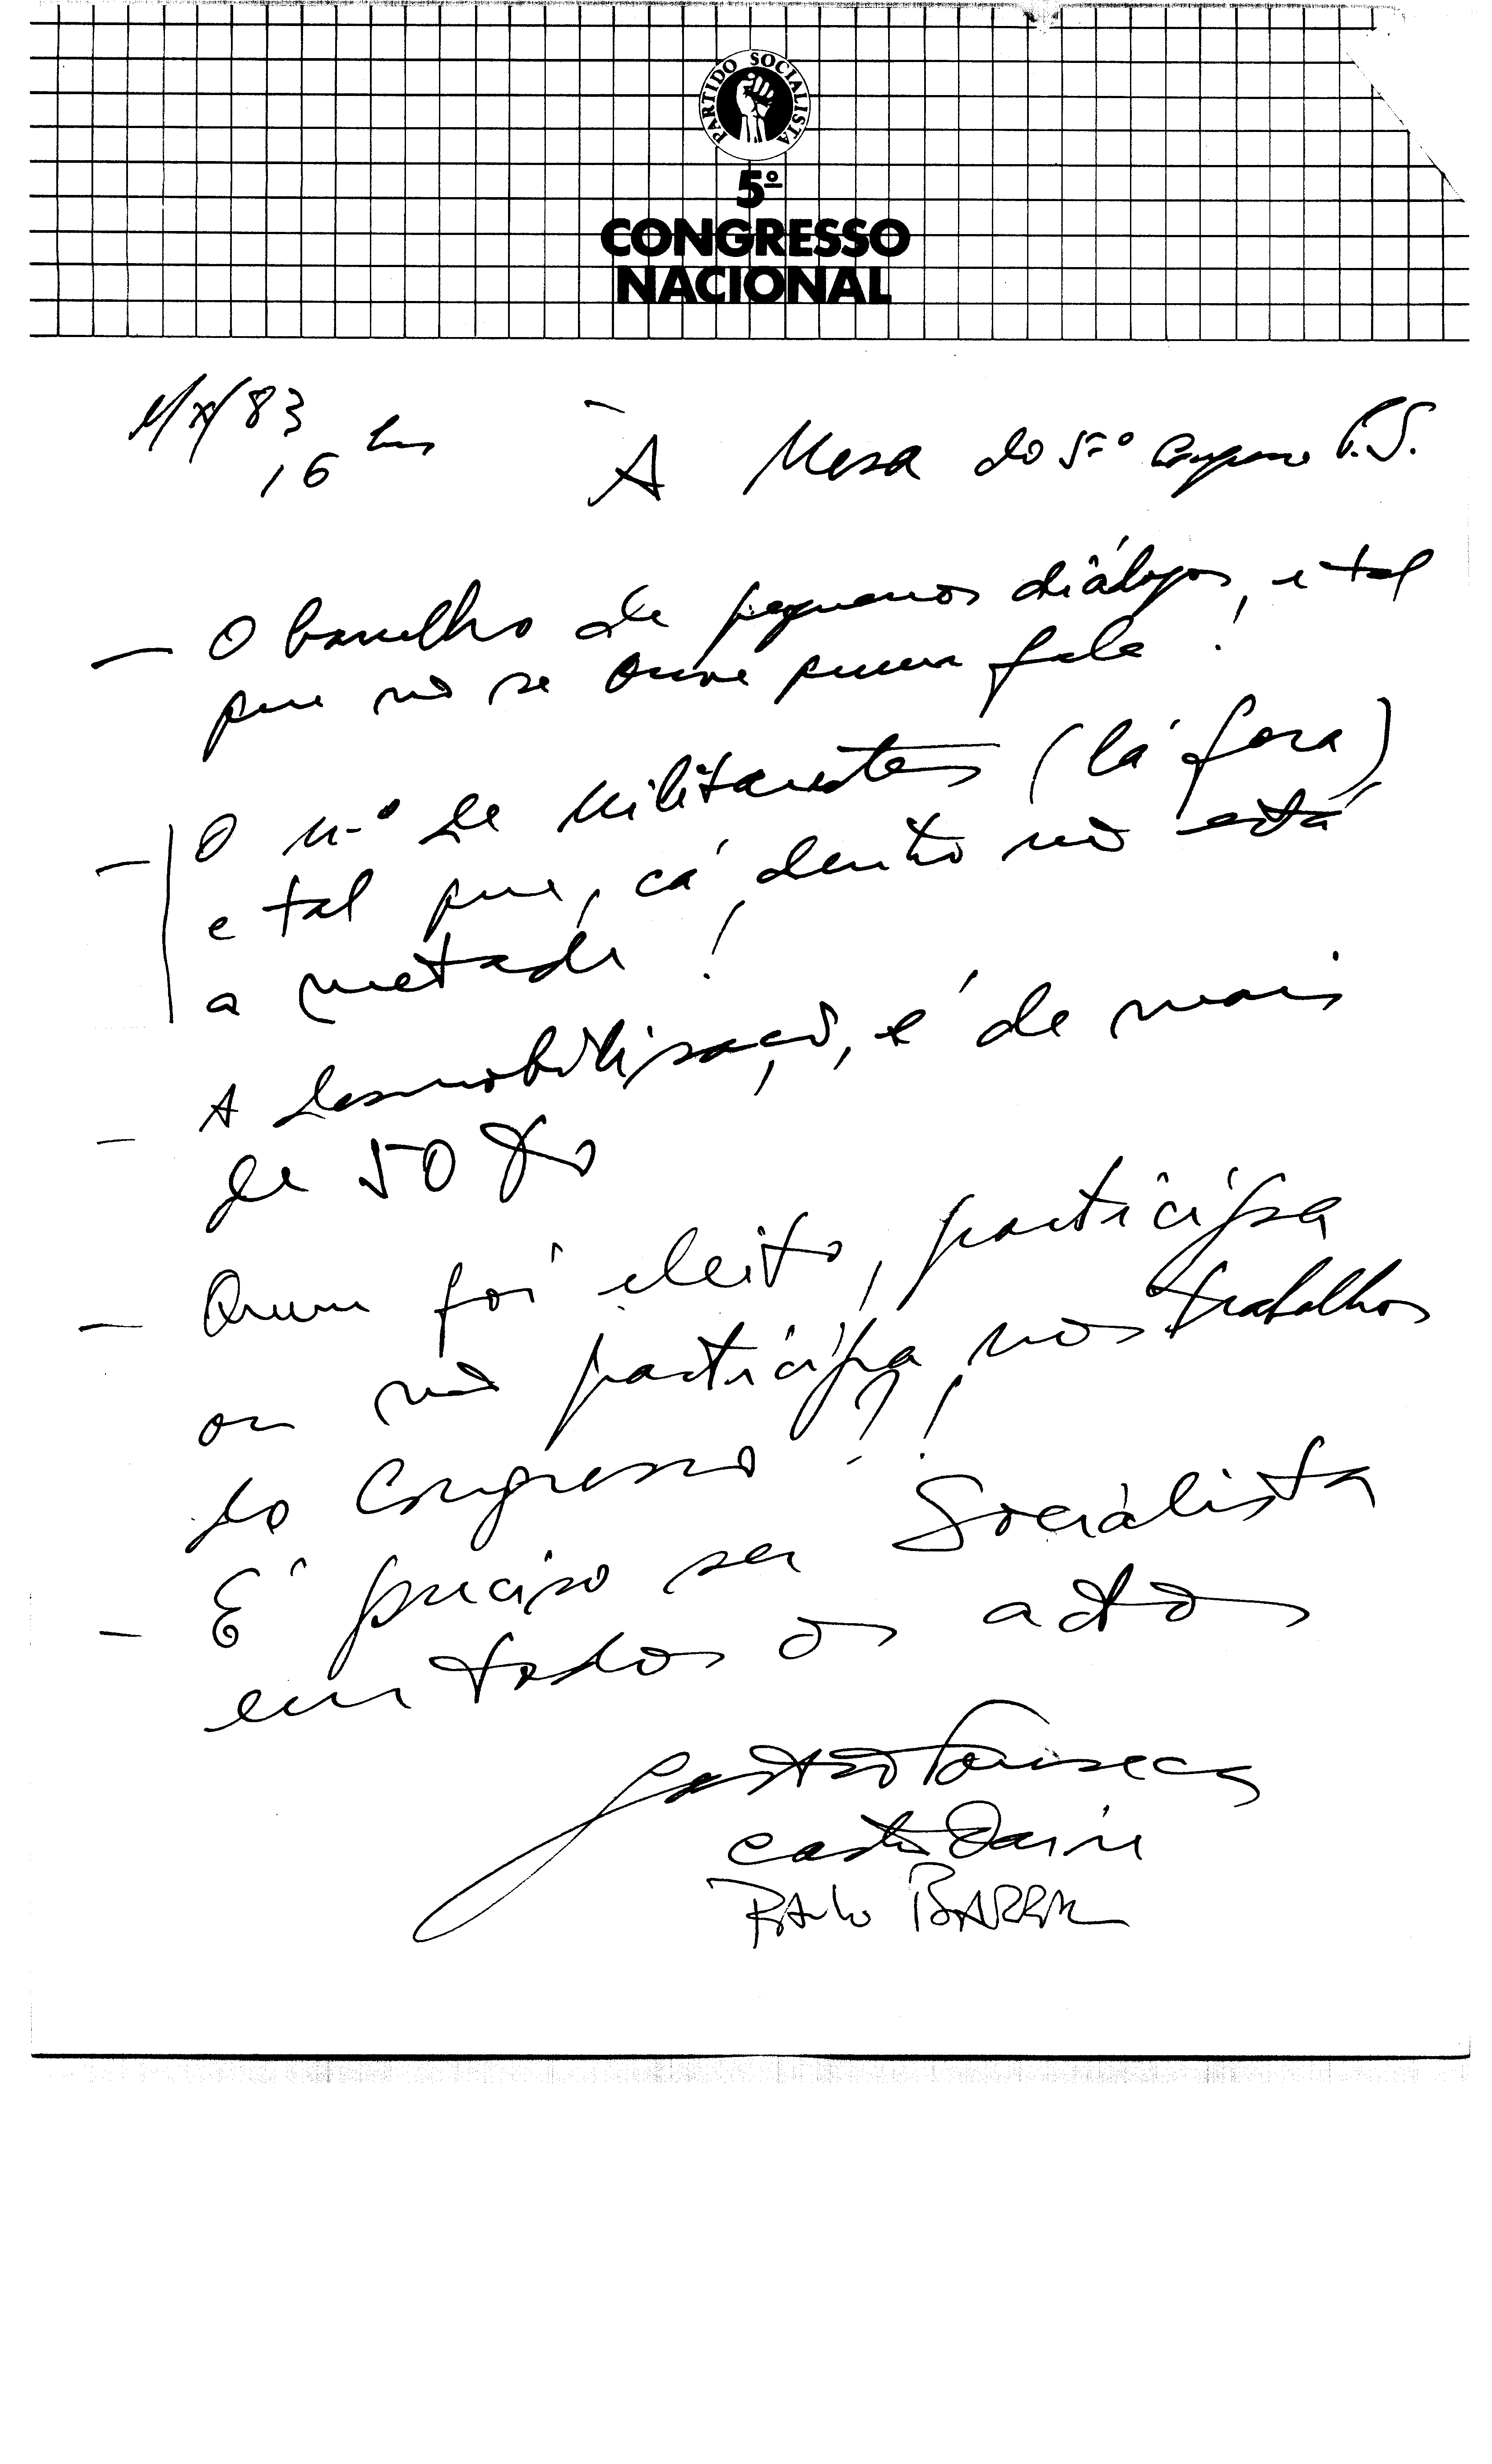 PARTIDO SOCIALISTA
5º
CONGRESSO
NACIONAL
/83
16 hs
À Mesa do 5º Congresso P.S.
— O barulho de pequenos diálogos, é tal
que não se ouve quem fala!
— O n.º de militantes (lá fora)
é tal que, cá dentro não está
a metade!
— A desmobilização, é de mais
de 50 %
— Quem foi eleito, participa
ou não participa nos trabalhos
do Congresso?!
— É preciso ser Socialista
em todos os actos
Fonseca
Castro Daire
Paulo BARRAL